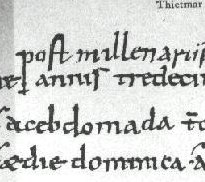 Thietmar
post millenarii
annis tredeci
acebdomada
die dominica